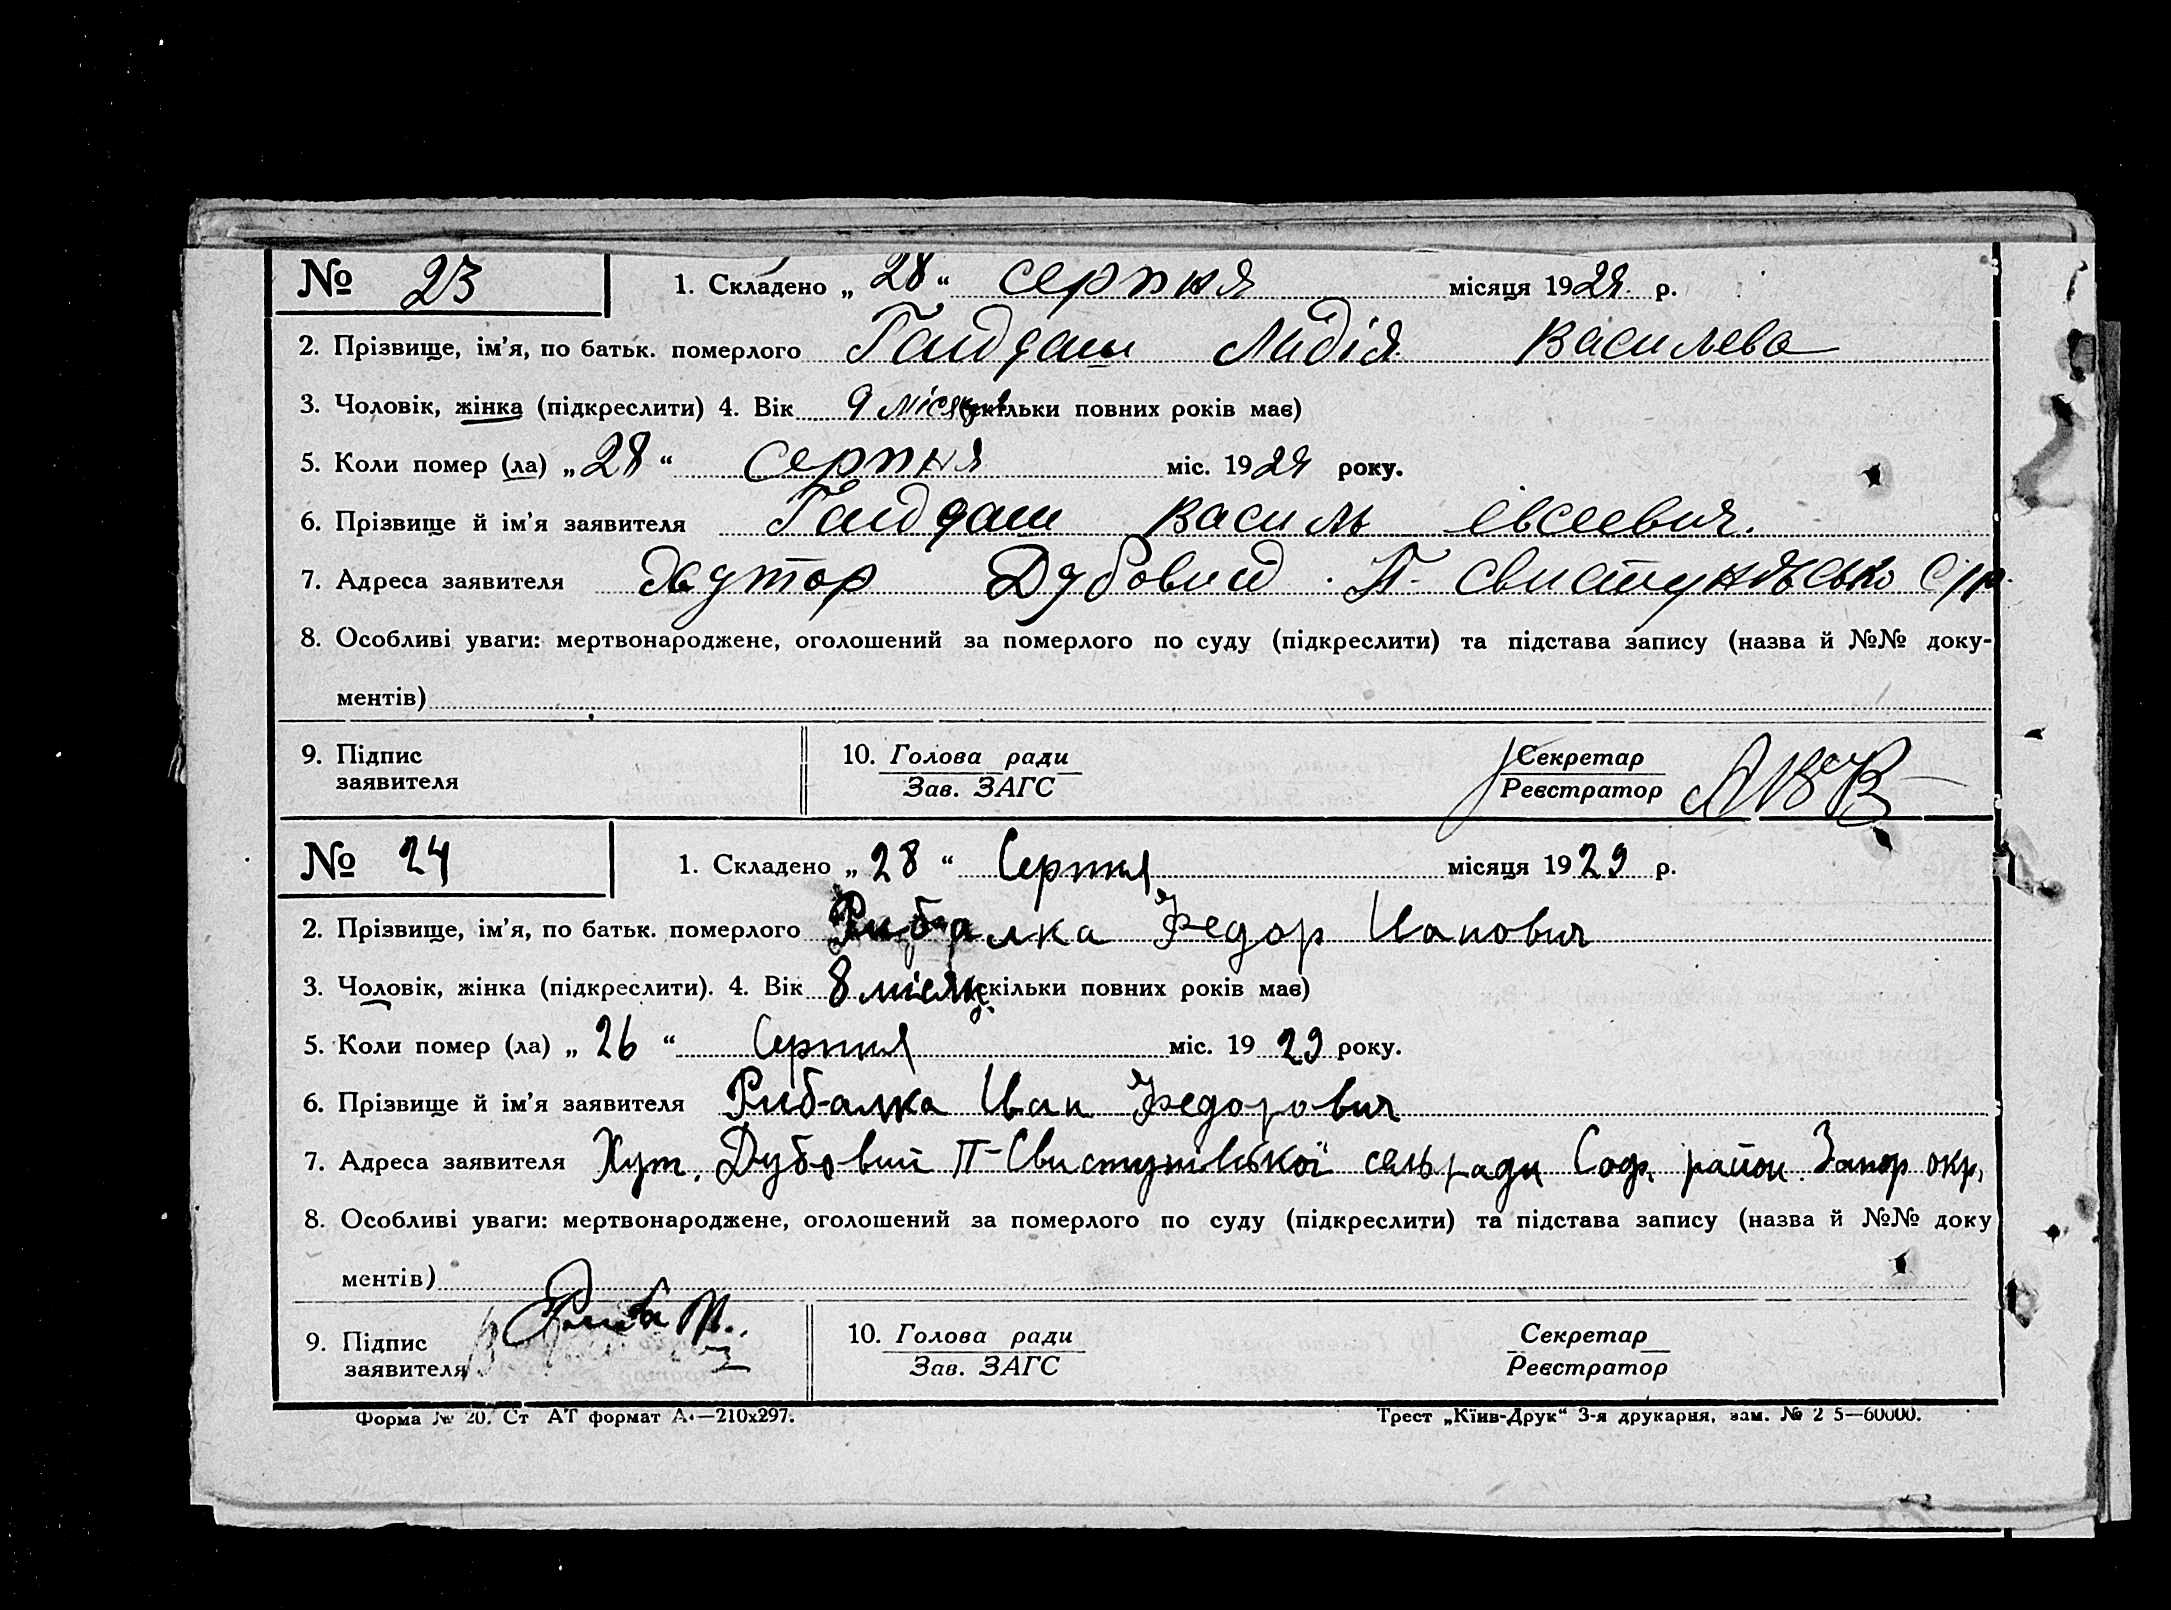 № 23 1. Складено „28“ серпня місяця 1929 р.
2. Прізвище, ім’я, по батьк. померлого Гайдаш Лидія Васильева
3. Чоловік, жінка (підкреслити) 4. Вік 9 місяців (скільки повних років має)
5. Коли помер (ла) „28“ серпня міс. 1929 року.
6. Прізвище й ім’я заявителя Гайдаш Василь Євсеевич.
7. Адреса заявителя Хутор Дубовий П-Свистунівсько С/р.
8. Особливі уваги: мертвонароджене, оголошений за померлого по суду (підкреслити) та підстава запису (назва й №№ доку-
ментів)
9. Підпис заявителя 10. Голова ради Зав. ЗАГС Секретар Реєстратор
№ 24 1. Складено „28“ Серпня місяця 1929 р.
2. Прізвище, ім’я, по батьк. померлого Рибалка Федор Иванович
3. Чоловік, жінка (підкреслити). 4. Вік 8 місяц. (скільки повних років має)
5. Коли помер (ла) „26“ Серпня міс. 1929 року.
6. Прізвище й ім’я заявителя Рибалка Иван Федорович
7. Адреса заявителя Хут. Дубовий П-Свистунівської сельради Соф. район. Запор окр,
8. Особливі уваги: мертвонароджене, оголошений за померлого по суду (підкреслити) та підстава запису (назва й №№ доку
ментів)
9. Підпис заявителя 10. Голова ради Зав. ЗАГС Секретар Реєстратор
Форма № 20. Ст АТ формат А—210х297. Трест „Київ-Друк“ 3-я друкарня, зам. № 2 5—60000.